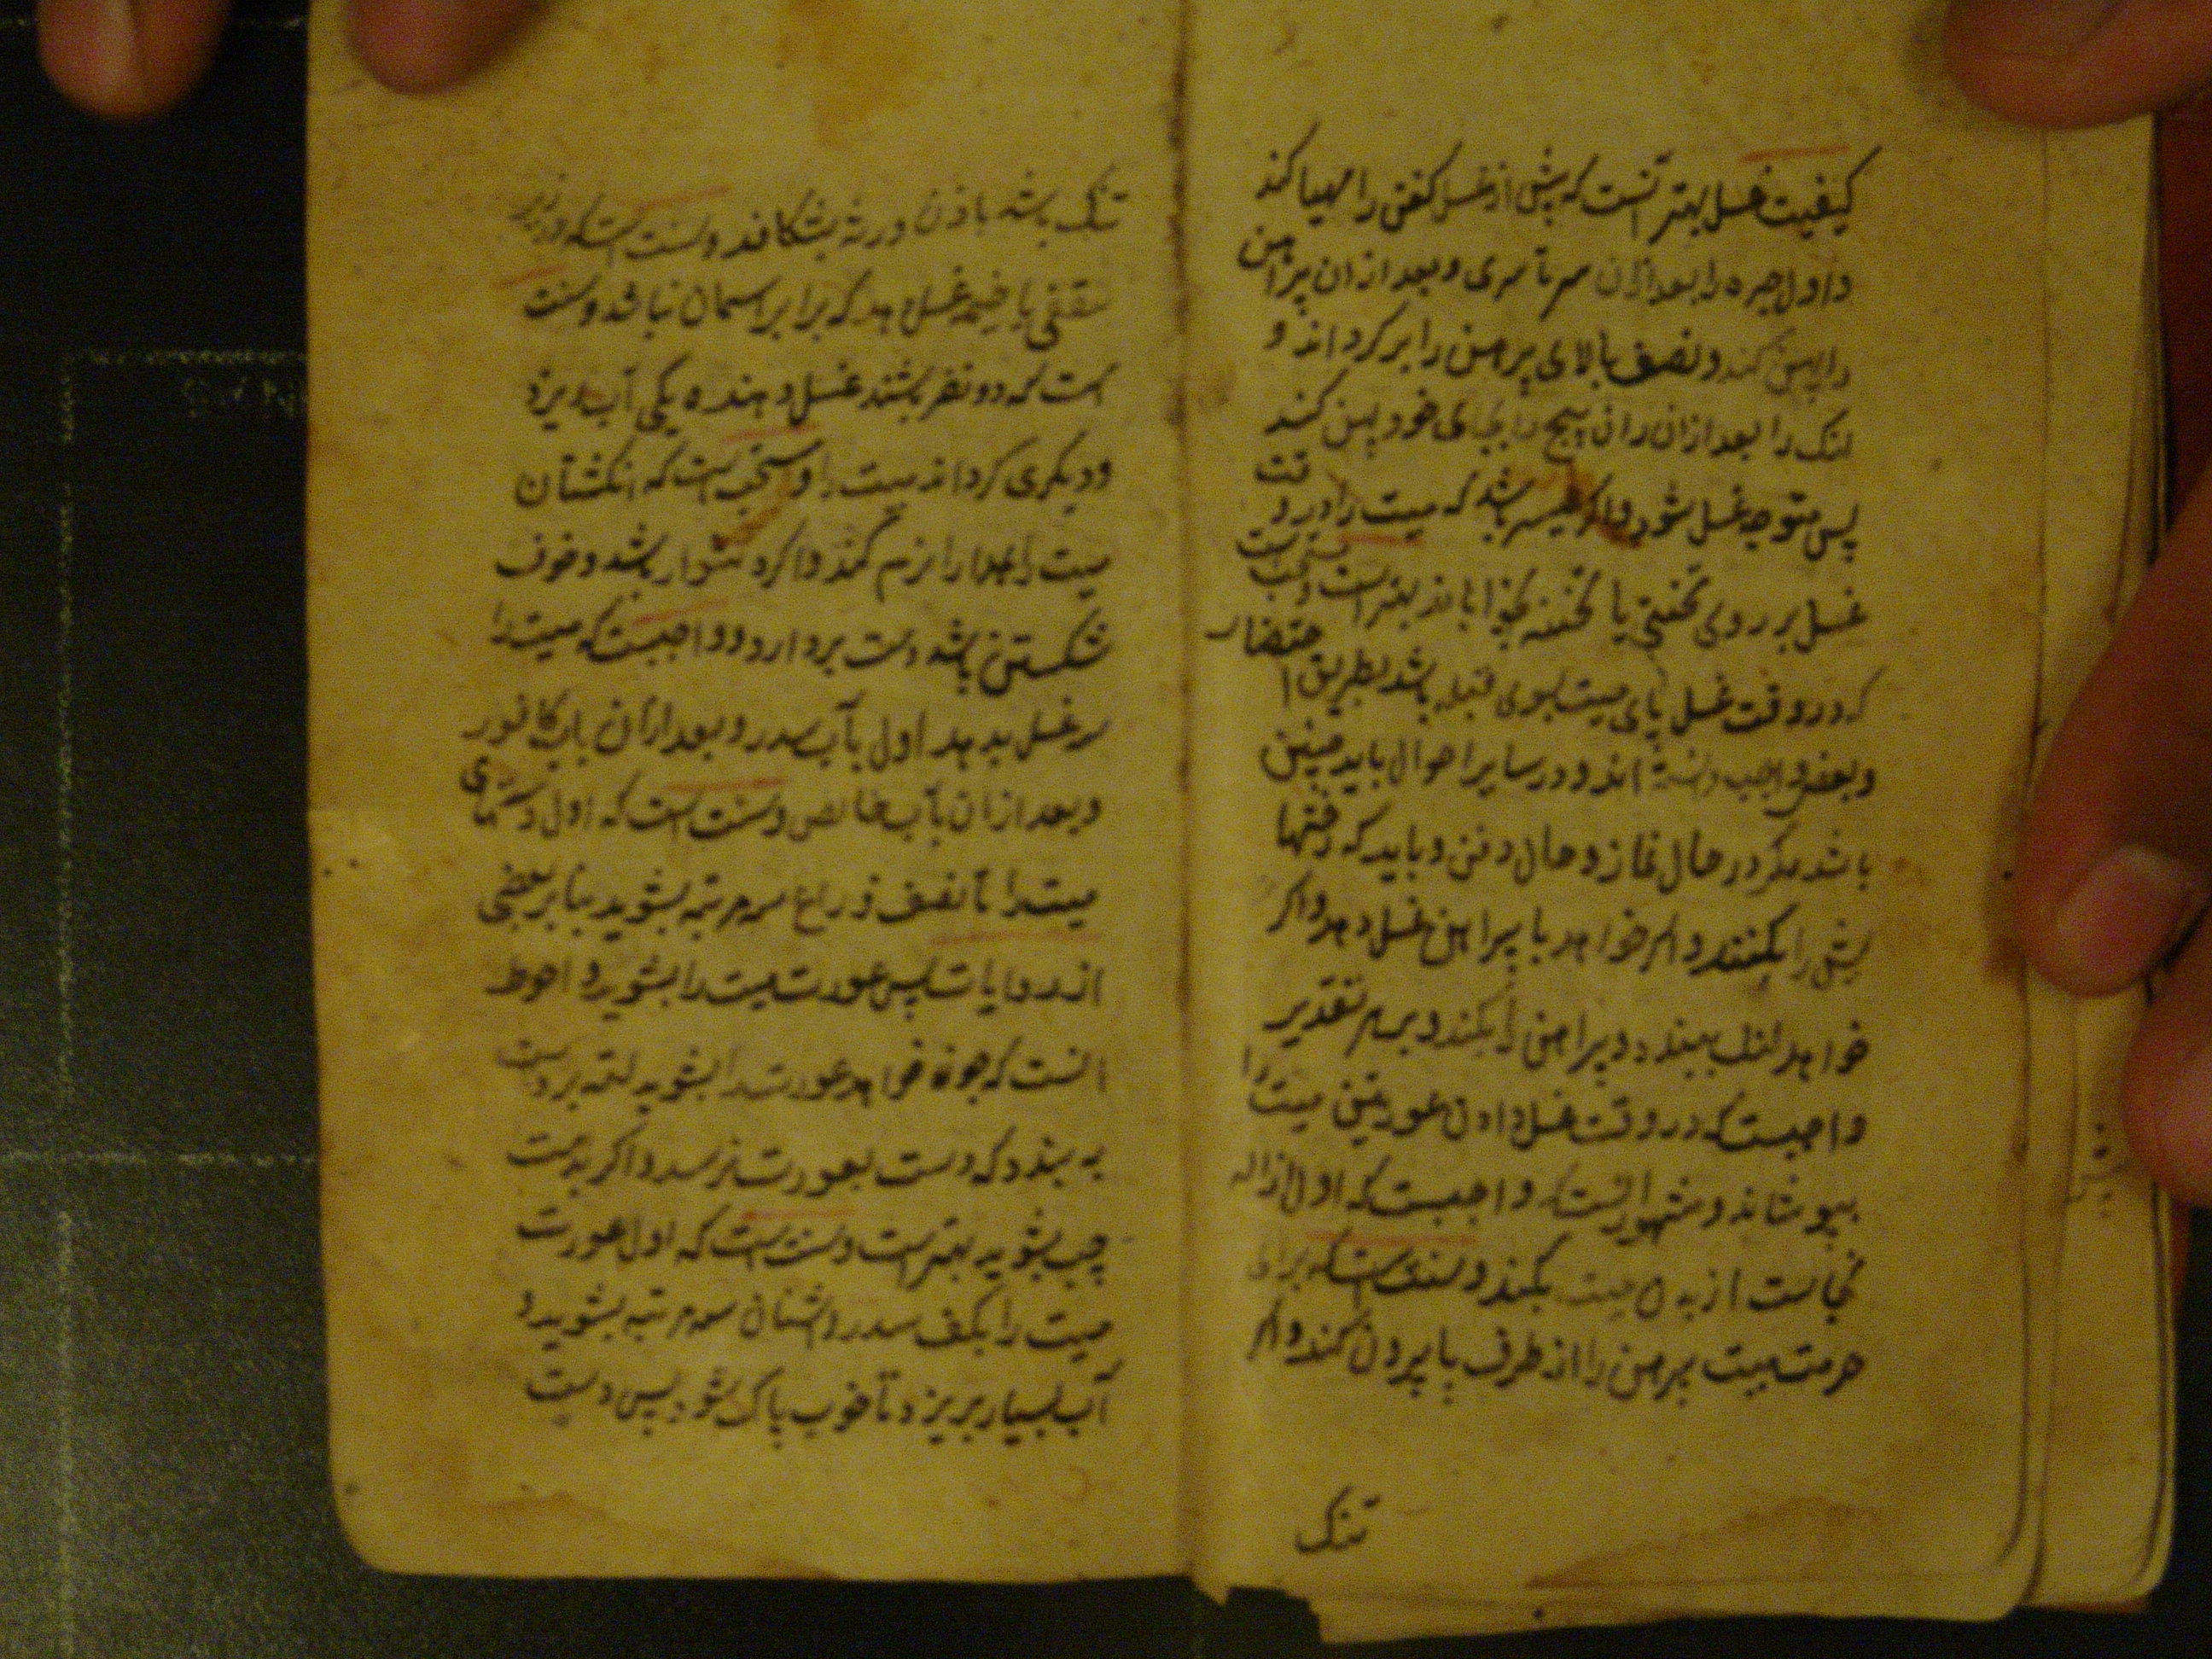 کیفیت غسل بهتر آنست که پیش از غسل کفن را مهیا کند
و اول حبره را بعد ازان سرتاسری و بعد ازان پیراهن
را پهن کند و نصف بالای پیرهن را بر کرداند و
لنک را بعد ازان ران پیچ را بجای خود پهن کند
پس متوجه غسل شود و اکر میسر باشد که میت را در وقت
غسل بر روی تختی یا تخته بخوابانند بهتر است و مستحب است
که در وقت غسل پای میت بسوی قبله باشد بطریق احتضار
و بعضی واجب دانسته اند و در سایر احوال باید چنین
باشد مکر در حال نماز و حال دفن و باید که رختها
یش را بکنند و اکر خواهد با پیراهن غسل دهد و اکر
خواهد لنک ببندد و پیراهن را بکند و بر هر تقدیر
واجبست که در وقت غسل دادن عورتین میت را
بپوشاند و مشهور آنستکه واجبست که اول ازاله
نجاست از بدن میت بکند و سنت استکه برای
حرمت میت پیرهن را از طرف پا بیرون کند و اکر
تنک
تنک باشد باذن ورثه بشکافند و سنت استکه در زیر
سقفی یا خیمه غسل دهد که برابر اسمان نباشد و سنت
است که دو نفر باشند غسل دهنده یکی آب ریزد
و دیکری کرداند میت را و مستحب است که انکشتان
میت را همه را نرم کند و اکر دشوار باشد و خوف
شکستن باشد دست بردارد و واجبست که میت را
سه غسل بدهد اول بآب سدر و بعد ازان باب کافور
و بعد ازان بآب خالص و سنت است که اول دستهای
میت را تا نصف ذراع سه مرتبه بشوید بنا بر بعضی
از روایات پس عورت میت را بشوید و احوط
انست که چون خواهد عورت را بشوید لته بر دست
به بندد که دست بعورت نرسد و اکر بدست
چپ بشوید بهتر است و سنت است که اول عورت
میت را بکف سدر و اشنان سه مرتبه بشوید و
آب بسیار بریزد تا خوب پاک شود پس دست